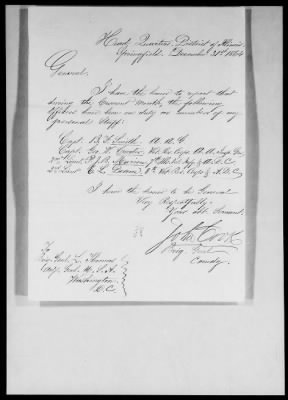 Head Quarters District of Illinois
Springfield, December 31st 1864
General.
I have the honor to report that
during the Current Month, the following
officers have been on duty as members of my
personal staff:
Capt. B. F. Smith. A. A. G.
Capt. Geo. W. Vet. Res. Corps. A. A. Insp. Genl
2nd Lieut. P. J. B. Marion 7th Vol. Inf. & A. D. C.
2nd Lieut C. L. 8th Vet. Res. Corps & A. D. C.
I have the honor to be General
Very Respectfully
Your Obt. Servant.
John Cook
Brig. Genl
Comdg.
To
Brig. Genl. L. Thomas
Adjt. Genl. U. S. A.
Washington
D. C.